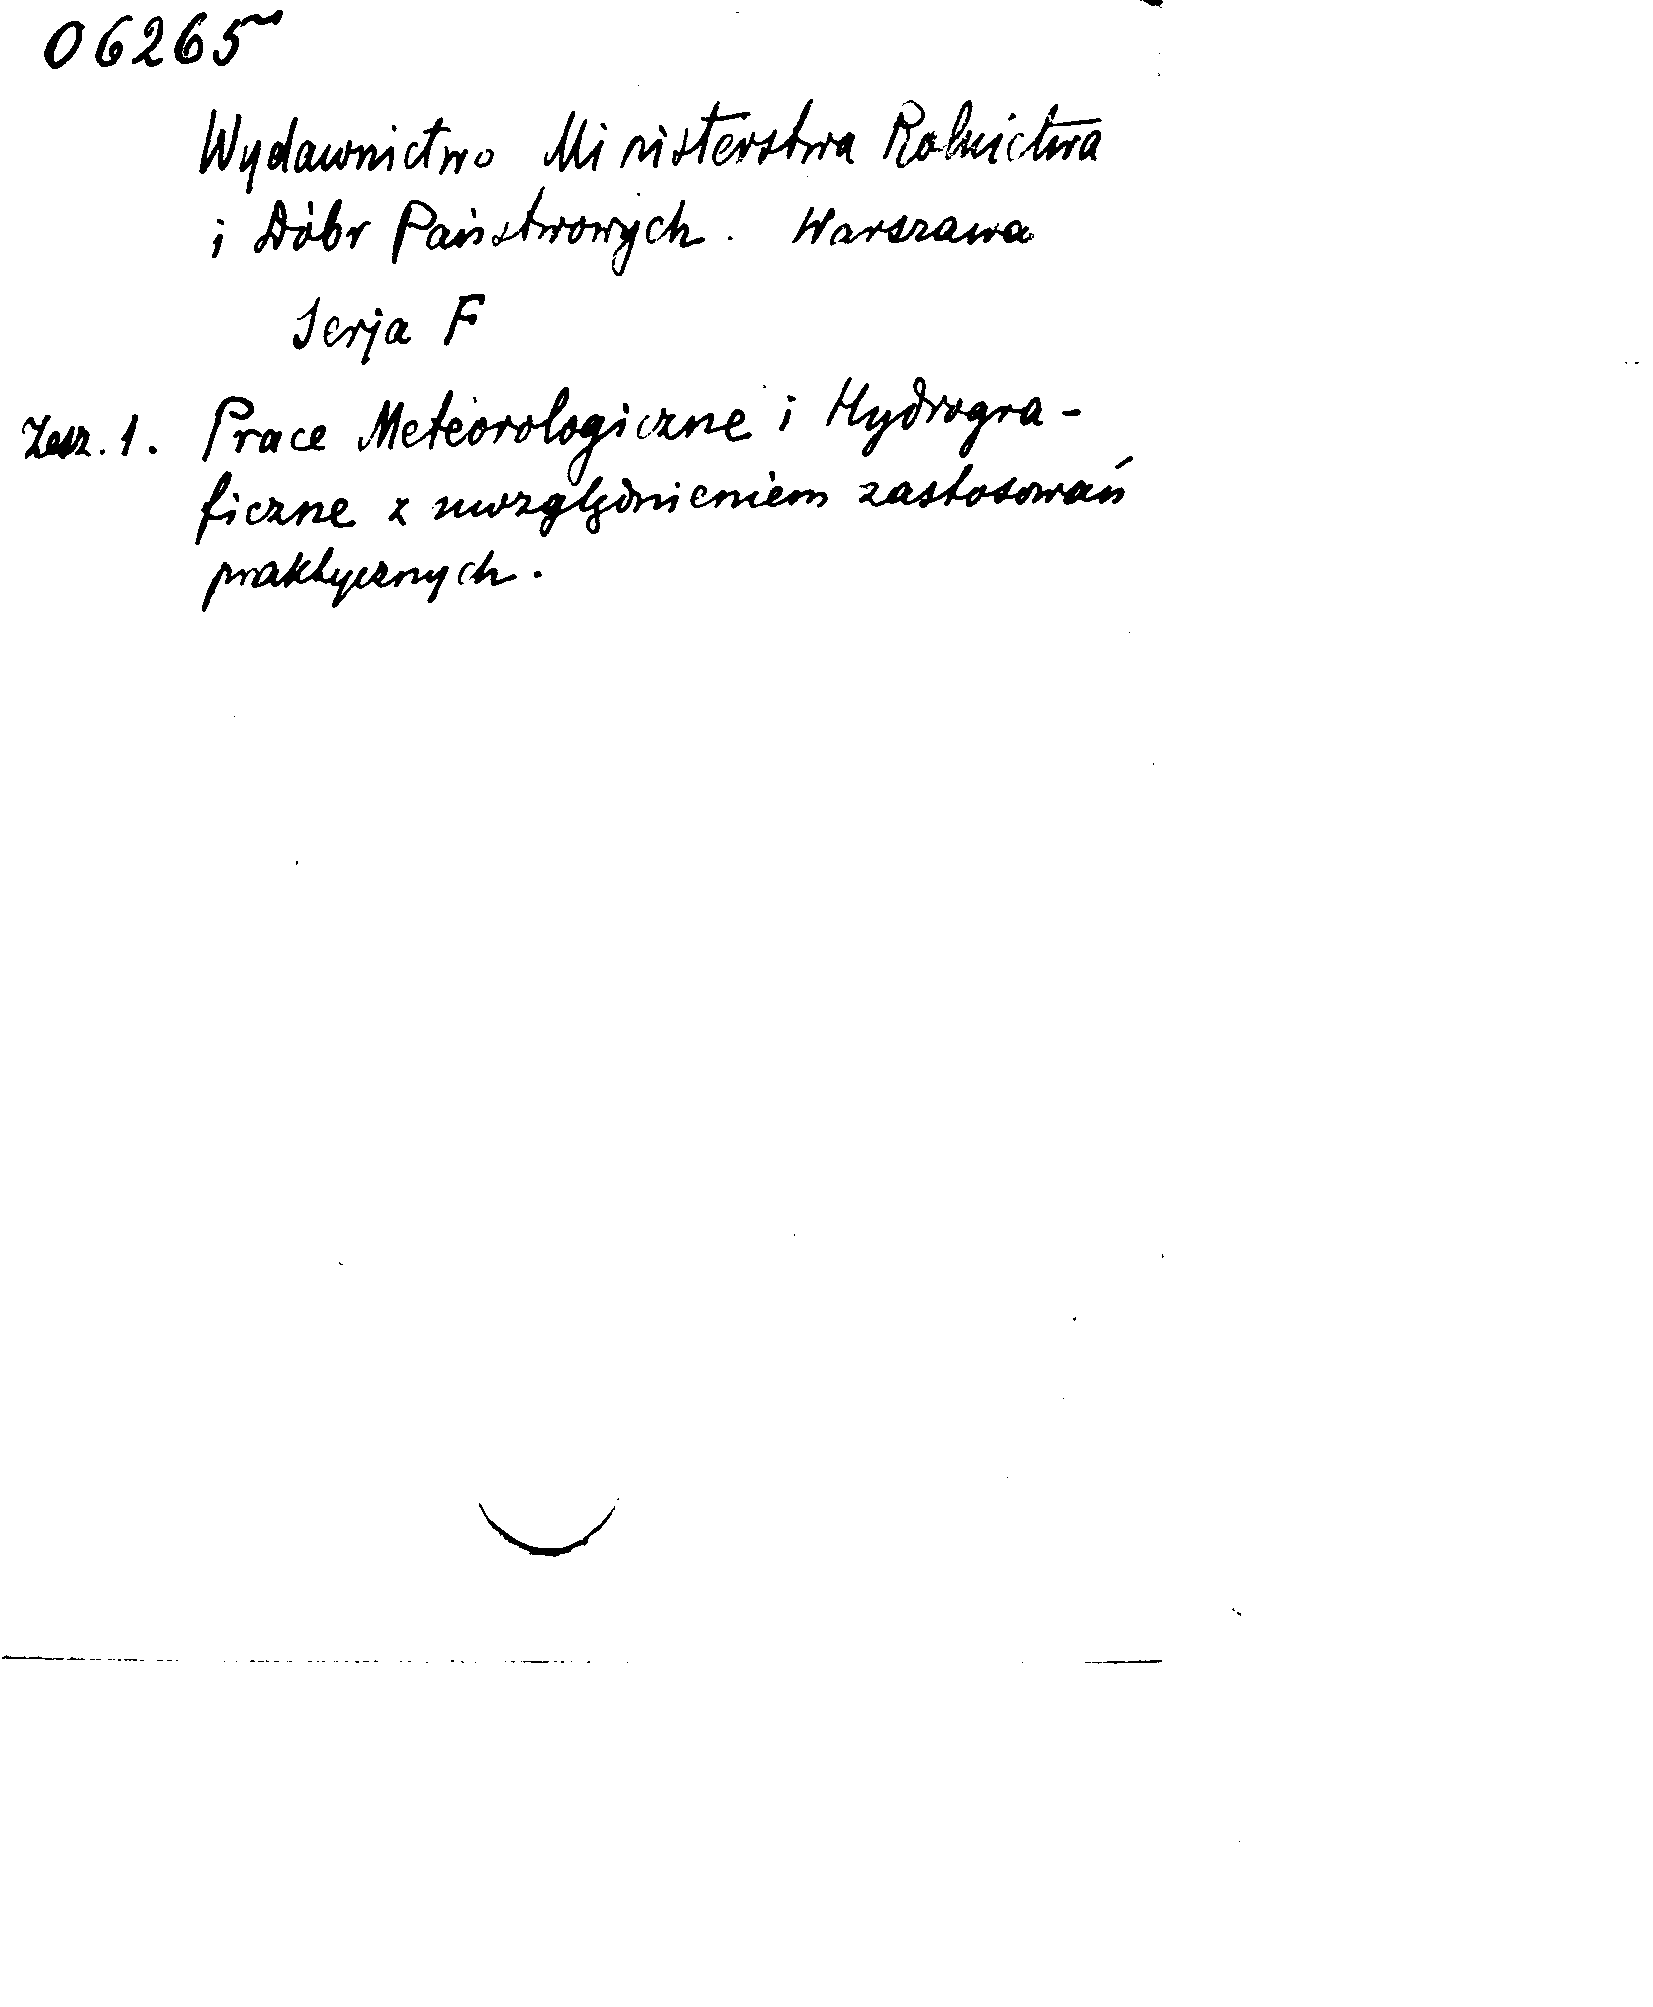 06265
Wydawnictwo Ministerstwa Rolnictwa
i Dóbr Państwowych. Warszawa
Serja F
Zesz. 1. Prace Meteorologiczne i Hydrogra-
ficzne z uwzględnieniem zastosowań
praktycznych.